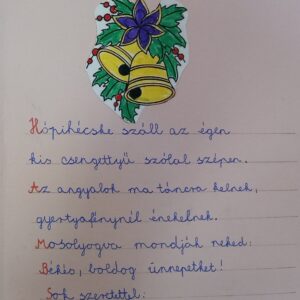 Hópihécske száll az égen
kis csengettyű szólal szépen.
Az angyalok ma táncra kelnek,
gyertyafénynél énekelnek.
Mosolyogva mondják neked:
Békés, boldog ünnepeket!
Sok szeretettel: